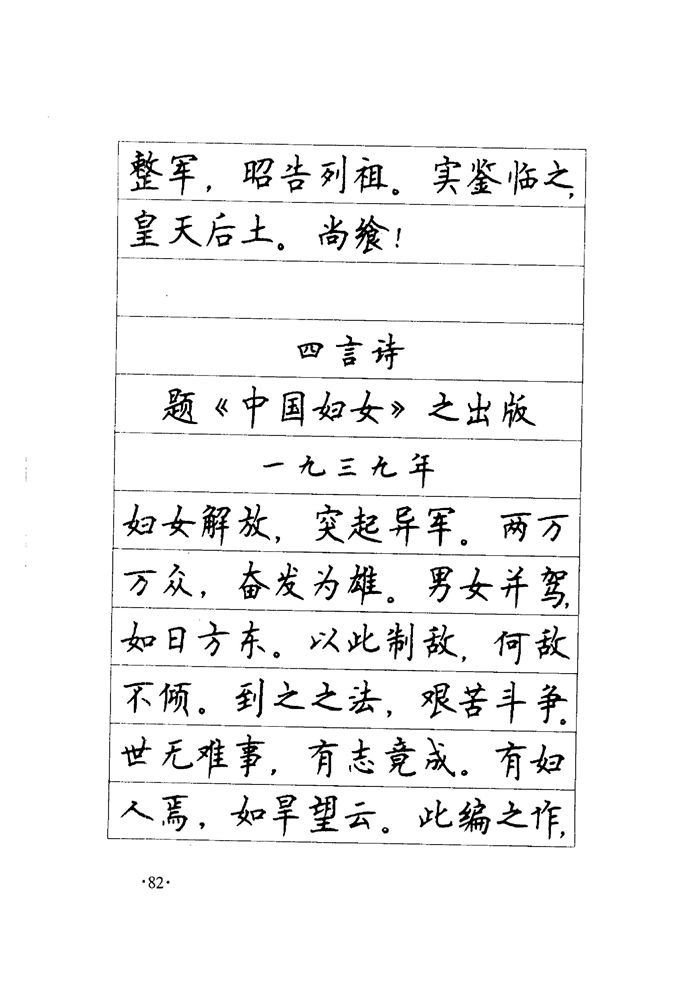 整军，昭告列祖。实鉴临之，
皇天后土。尚飨！
四言诗
题《中国妇女》之出版
一九三九年
妇女解放，突起异军。两万
万众，奋发为雄。男女并驾，
如日方东。以此制敌，何敌
不倾。到之之法，艰苦斗争。
世无难事，有志竟成。有妇
人焉，如旱望云。此编之作，
·82·